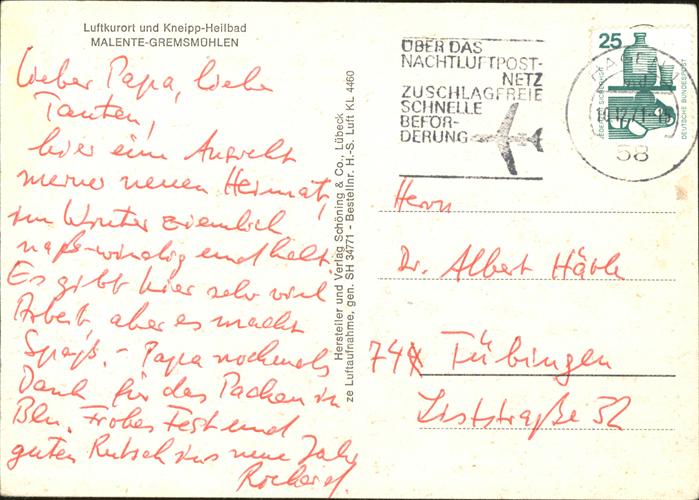 Luftkurort und Kneipp-Heilbad
MALENTE-GREMSMÜHLEN
Lieber Papa, liebe
Tanten,
hier eine Ansicht
meiner neuen Heimat,
im Winter ziemlich
naß-windig und kalt.
Es gibt hier sehr viel
Arbeit, aber es macht
Spaß. - Papa nochmals
Dank für das Packen in
Bln. Frohes Fest und
guten Rutsch ins neue Jahr
Hersteller und Verlag Schöning & Co., Lübeck
ze Luftaufnahme, gen. SH 34771 - Bestellnr. H.-S. Luft KL 4460
ÜBER DAS
NACHTLUFTPOST-
NETZ
ZUSCHLAGFREIE
SCHNELLE
BEFÖR-
DERUNG
25
JEDERZEIT SICHERHEIT
DEUTSCHE BUNDESPOST
58
Herrn
Dr. Albert
74 Tübingen
Liststraße 32